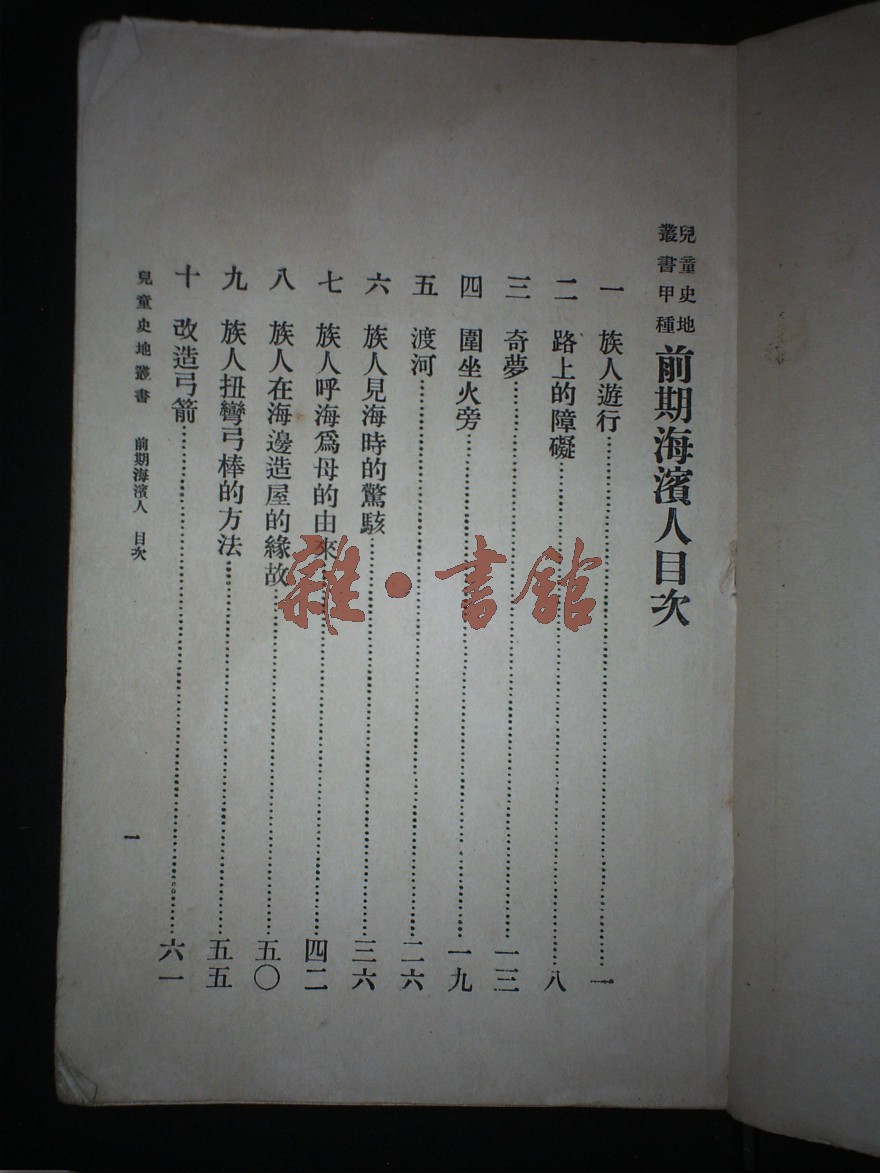 兒童史地叢書甲種
前期海濱人目次
一 族人遊行……一
二 路上的障礙……八
三 奇夢……一三
四 圍坐火旁……一九
五 渡河……二六
六 族人見海時的驚駭……三六
七 族人呼海爲母的由來……四二
八 族人在海邊造屋的緣故……五〇
九 族人扭彎弓棒的方法……五五
十 改造弓箭……六一
兒童史地叢書 前期海濱人 目次
一
雜·書館